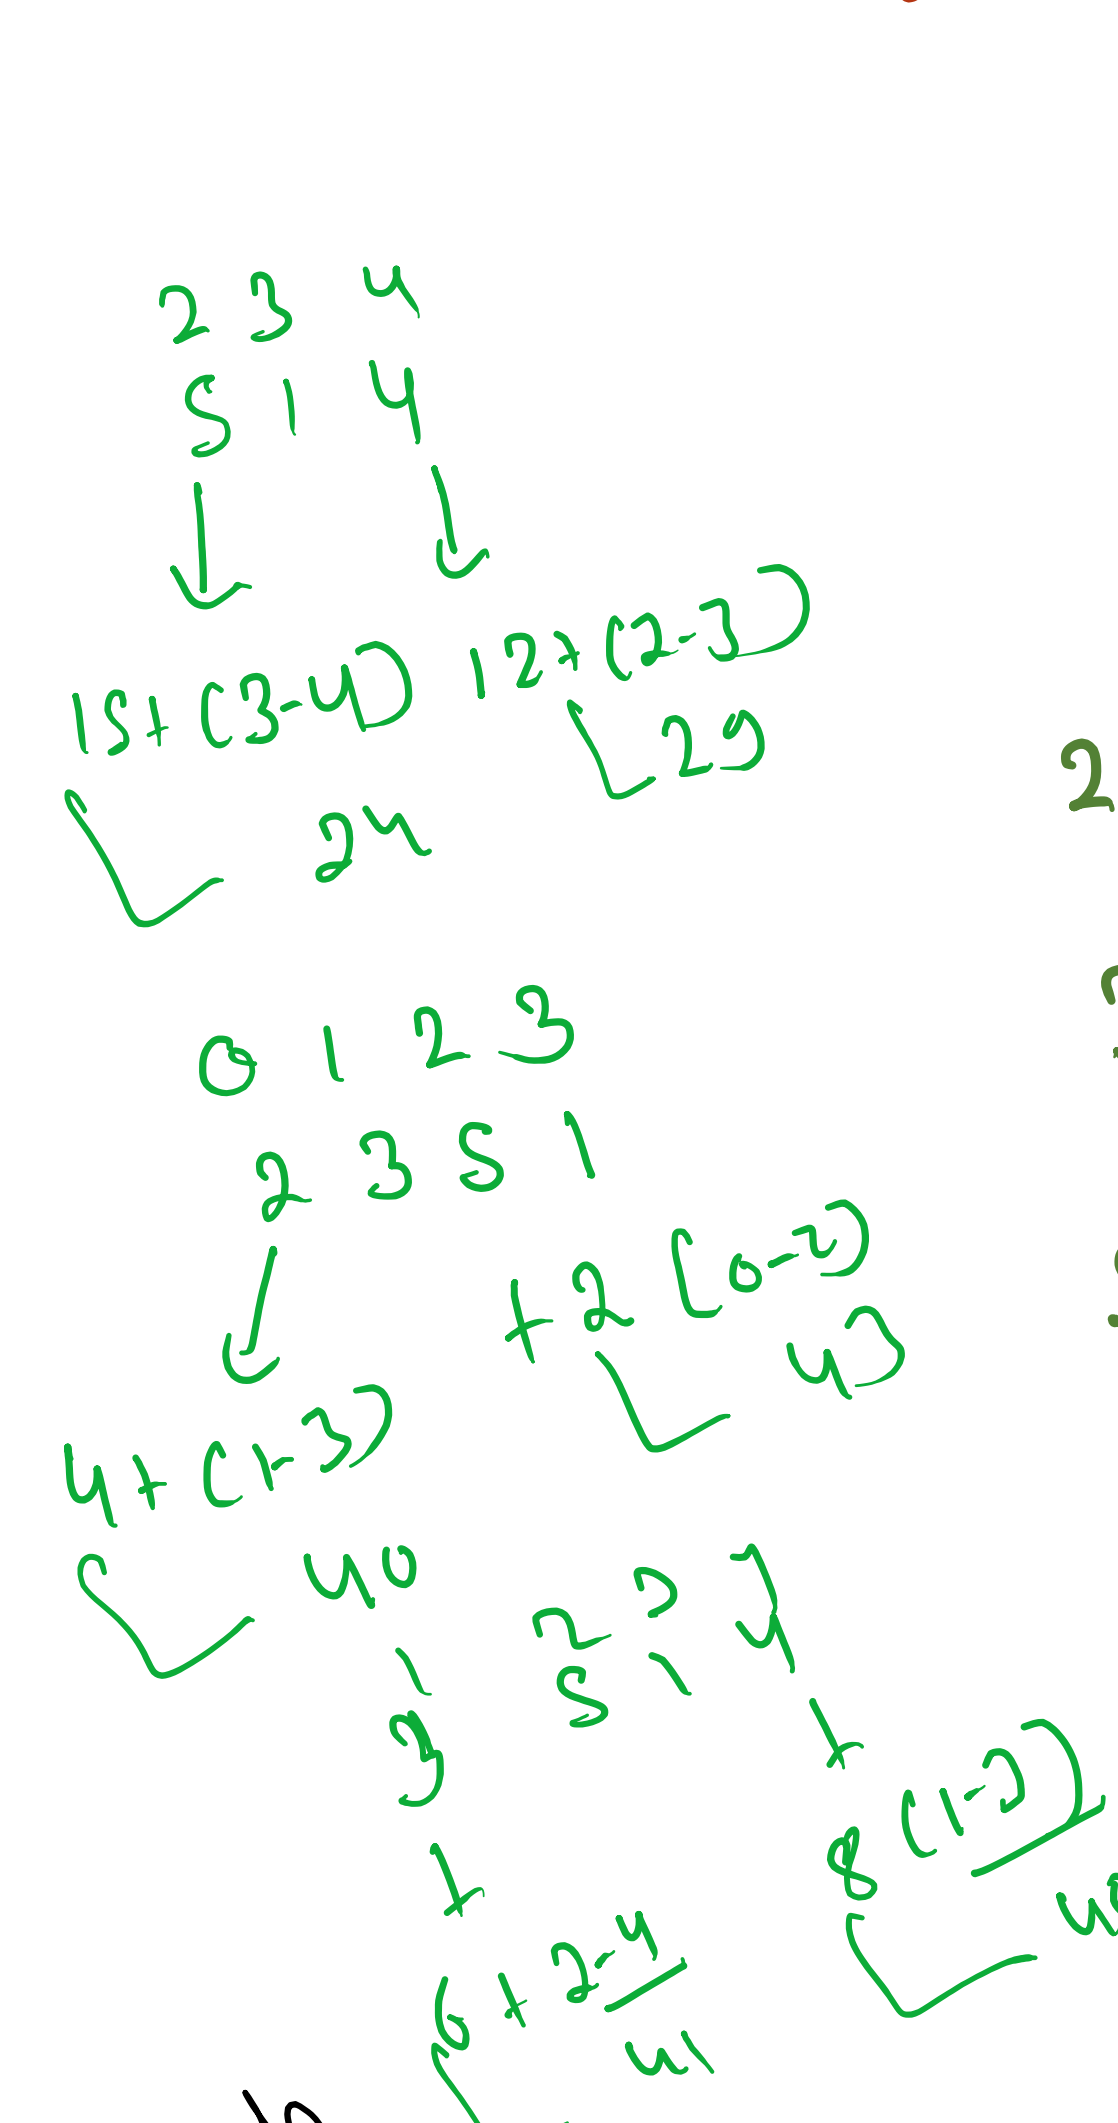 2 3 4
5 1 4
15+(3-4) 12+(2-3)
29
24
2
0 1 2 3
2 3 5 1
+2(0-2)
43
4+(1-3)
40
2 3 4
5 1
3
+ +
8(1-3)
6+2-4
41